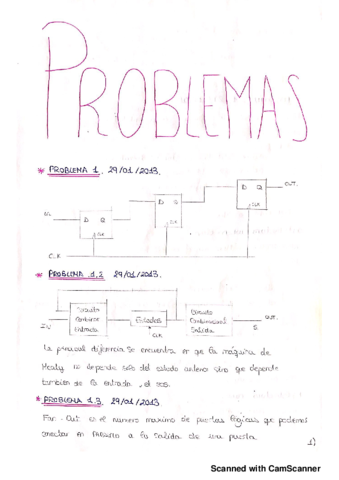 PROBLEMAS
* PROBLEMA 1. 29/01/2013.
D Q OUT.
CLK
D Q
CLK
IN.
D Q
CLK
CLK
* PROBLEMA 1.2 29/01/2013.
Circuito
Combinac
Entrada
Estados
Circuito
Combinacional
Salida
OUT.
IN
CLK
S
La principal diferencia se encuentra en que la máquina de
Mealy no depende solo del estado anterior sino que depende
también de la entrada,
* PROBLEMA 1.3. 29/01/2013
Fan-Out es el numero maximo de puertas lógicas que podemos
conectar en paralelo a la salida de una puerta.
1)
Scanned with CamScanner